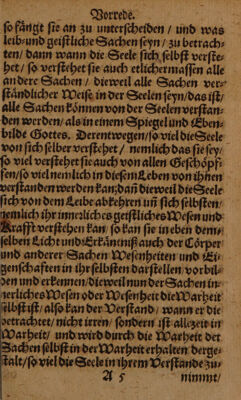 Vorrede.
so fängt sie an zu unterscheiden / und was
leib- und geistliche Sachen seyn / zu betrach-
ten / dann wann die Seele sich selbst verste-
het / so verstehet sie auch etlichermassen alle
andere Sachen / dieweil alle Sachen ver-
ständlicher Weise in der Seelen seyn / das ist /
alle Sachen können von der Seelen verstan-
den werden / als in einem Spiegel und Eben-
bilde Gottes. Derentwegen / so viel die Seele
von sich selber verstehet / nemlich das sie sey /
so viel verstehet sie auch von allen Geschöpf-
fen / so viel nemlich in diesem Leben von ihnen
verstanden werden kan; dañ dieweil die Seele
sich von dem Leibe abkehren uñ sich selbsten /
nemlich ihr innerliches geistliches Wesen und
Krafft verstehen kan / so kan sie in eben dem-
selben Licht und Erkäntniß auch der Cörper
und anderer Sachen Wesenheiten und Ei-
genschaften in ihr selbsten darstellen / vorbil-
den und erkennen / dieweil nun der Sachen in-
nerliches Wesen oder Wesenheit die Warheit
selbst ist / also kan der Verstand / wann er die
betrachtet / nicht irren / sondern ist allezeit in
Warheit / und wird durch die Warheit der
Sachen selbst in der Warheit erhalten / derge-
stalt / so viel die Seele in ihrem Verstande zu-
A 5 nimmt /